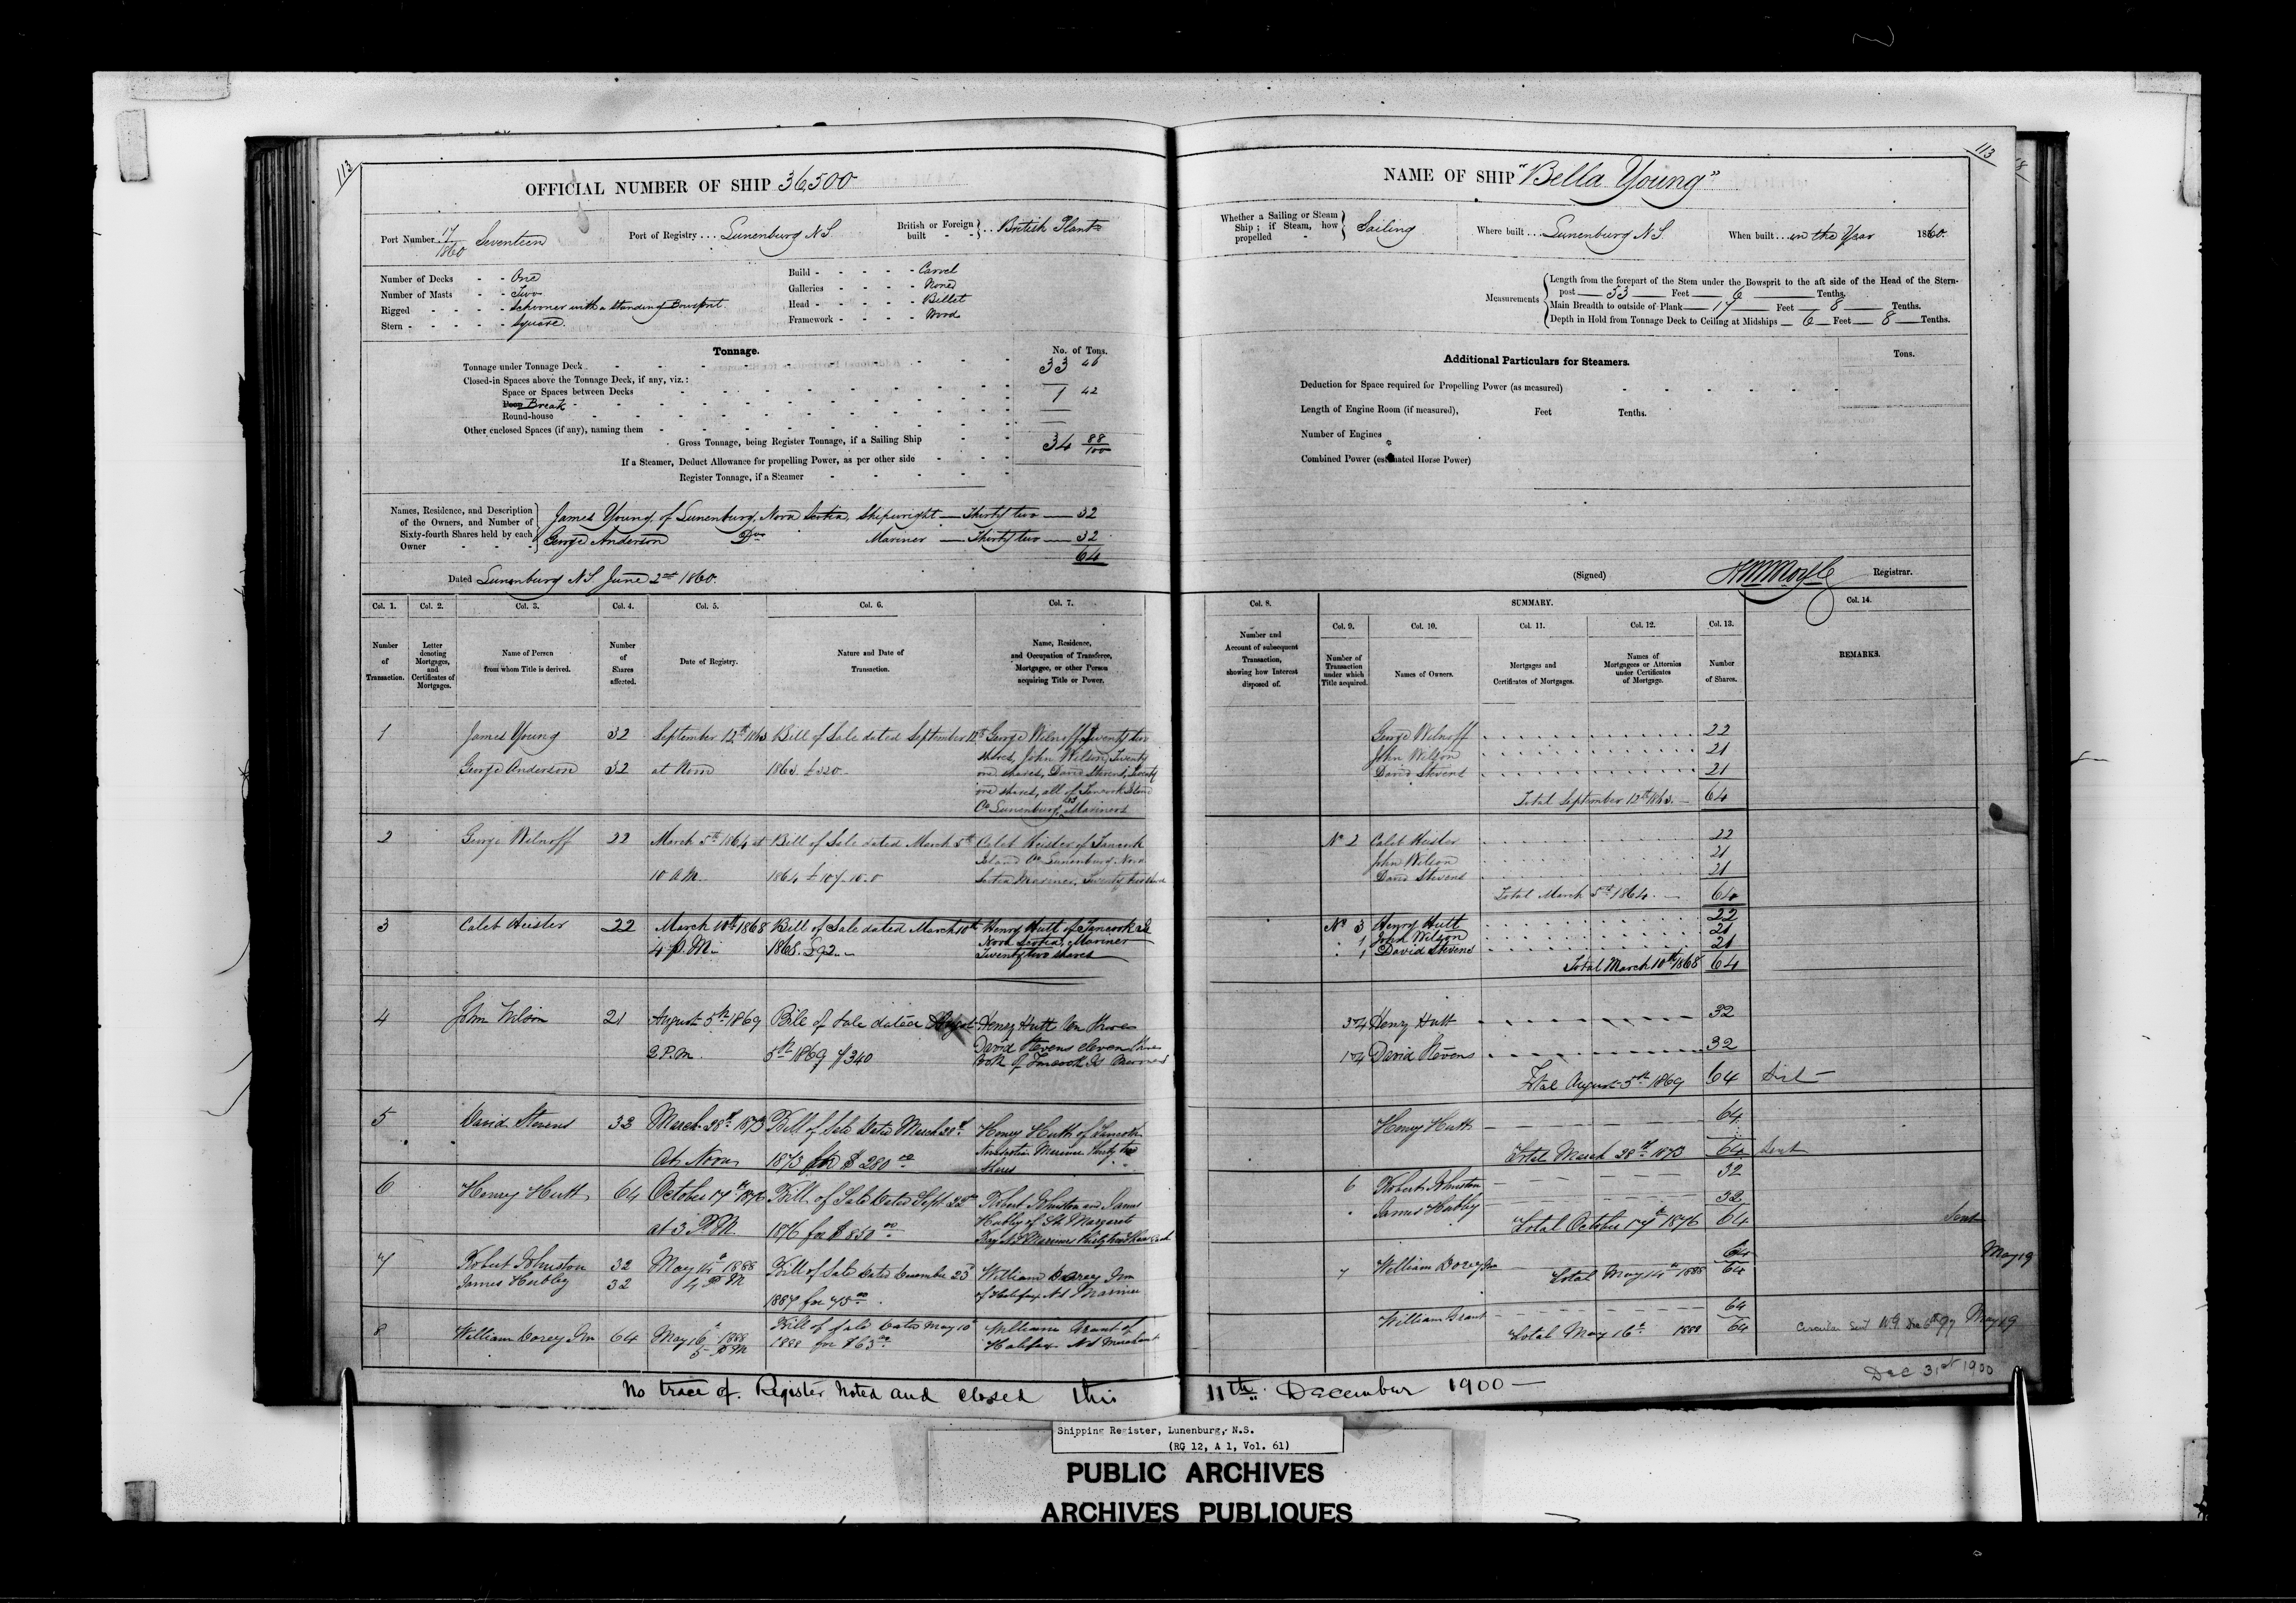 113
OFFICIAL NUMBER OF SHIP 36,500
Port Number 17/1860 Seventeen Port of Registry ... Lunenburg N.S. British or Foreign built } .. British Plant
Number of Decks - - One
Number of Masts - - Two
Rigged - - - - Schooner with a standing Bowsprit.
Stern - - - - Square.
Build - - - - - Carvel
Galleries - - - - None
Head - - - - - Billet
Framework - - - - Wood
Tonnage. No. of Tons.
Tonnage under Tonnage Deck 33 46
Closed-in Spaces above the Tonnage Deck, if any, viz.:
Space or Spaces between Decks
Poop Break 1 42
Round-house
Other enclosed Spaces (if any), naming them
Gross Tonnage, being Register Tonnage, if a Sailing Ship 34 88/100
If a Steamer, Deduct Allowance for propelling Power, as per other side
Register Tonnage, if a Steamer
Names, Residence, and Description of the Owners, and Number of Sixty-fourth Shares held by each Owner
James Young, of Lunenburg, Nova Scotia, Shipwright — Thirty two — 32
George Anderson Do Mariner — Thirty two — 32
64
Dated Lunenburg N.S. June 2nd 1860.
Col. 1. Col. 2. Col. 3. Col. 4. Col. 5. Col. 6. Col. 7.
Number of Transaction.
Letter denoting Mortgages, and Certificates of Mortgages.
Name of Person from whom Title is derived.
Number of Shares affected.
Date of Registry.
Nature and Date of Transaction.
Name, Residence, and Occupation of Transferee, Mortgagee, or other Person acquiring Title or Power.
1 James Young 32 September 12th 1863 Bill of Sale dated September 12th George Wilnoff, Twenty two
shares, John Wilson, Twenty
George Anderson 32 at Noon 1863. £320.. one shares, David Stevens, Twenty
one shares, all of Tancook Island
Co Lunenburg, NS Mariners
2 George Wilnoff 22 March 5th 1864 at Bill of Sale dated March 5th Caleb Heisler of Tancook
Island Co Lunenburg Nova
10 A.M. 1864 £107.10.0 Scotia Mariner, Twenty two shares
3 Caleb Heisler 22 March 10th 1868 Bill of Sale dated March 10th Henry Hutt of Tancook Id
4 P.M. 1868. £92.. Nova Scotia, Mariner
Twenty two shares
4 John Wilson 21 August 5th 1869 Bill of Sale dated August Henry Hutt ten shares
2 P.M. 5th 1869 $340 David Stevens eleven shares
both of Tancook Id Mariners
5 David Stevens 32 March 28th 1873 Bill of Sale Dated March 28th Henry Hutt of Tancook
At Noon 1873 for $280.00 Nova Scotia Mariner Thirty two
shares
6 Henry Hutt 64 October 17th 1876 Bill of Sale Dated Sept. 22nd Robert Johnston and James
at 3 P.M. 1876 for $850.00 Hubley of St. Margarets
Bay N.S Mariners Thirty two shares each
7 Robert Johnston 32 May 14th 1888 Bill of Sale Dated December 23d William Dorey Jnr
James Hubley 32 4 P.M 1887 for 75.00 of Halifax N.S Mariner
8 William Dorey Jnr 64 May 16th 1888 Bill of Sale Dated May 10th William Grant of
5 P.M 1888 for $63.00 Halifax N.S Merchant
113
NAME OF SHIP "Bella Young"
Whether a Sailing or Steam Ship; if Steam, how propelled } Sailing Where built ... Lunenburg N.S. When built ... in the Year 1860.
Measurements
Length from the forepart of the Stem under the Bowsprit to the aft side of the Head of the Stern-
post — 53 — Feet — 6 — Tenths.
Main Breadth to outside of Plank — 17 — Feet — 8 — Tenths.
Depth in Hold from Tonnage Deck to Ceiling at Midships — 6 — Feet — 8 — Tenths.
Additional Particulars for Steamers. Tons.
Deduction for Space required for Propelling Power (as measured)
Length of Engine Room (if measured), Feet Tenths.
Number of Engines
Combined Power (estimated Horse Power)
(Signed) Registrar.
SUMMARY.
Col. 8. Col. 9. Col. 10. Col. 11. Col. 12. Col. 13. Col. 14.
Number and Account of subsequent Transaction, showing how Interest disposed of.
Number of Transaction under which Title acquired.
Names of Owners.
Mortgages and Certificates of Mortgages.
Names of Mortgagees or Attornies under Certificates of Mortgage.
Number of Shares.
REMARKS.
George Wilnoff 22
John Wilson 21
David Stevens 21
Total September 12th 1863. 64
No 2 Caleb Heisler 22
John Wilson 21
David Stevens 21
Total March 5th 1864. 64
No 3 Henry Hutt 22
" 1 John Wilson 21
" 1 David Stevens 21
Total March 10th 1868 64
3+4 Henry Hutt 32
1+4 David Stevens 32
Total August 5th 1869 64
Henry Hutt 64
Total March 28th 1873 64 Sent
6 Robert Johnston 32
" James Hubley 32
Total October 17th 1876 64 Sent
7 William Dorey Jnr 64
Total May 14th 1888 64 May 19
William Grant 64
Total May 16th 1888 64 Circular Sent W.G. Dec 6th 97 May 19
Dec 31st 1900
No trace of. Register noted and closed this 11th December 1900 —
Shipping Register, Lunenburg, N.S.
(RG 12, A 1, Vol. 61)
PUBLIC ARCHIVES
ARCHIVES PUBLIQUES